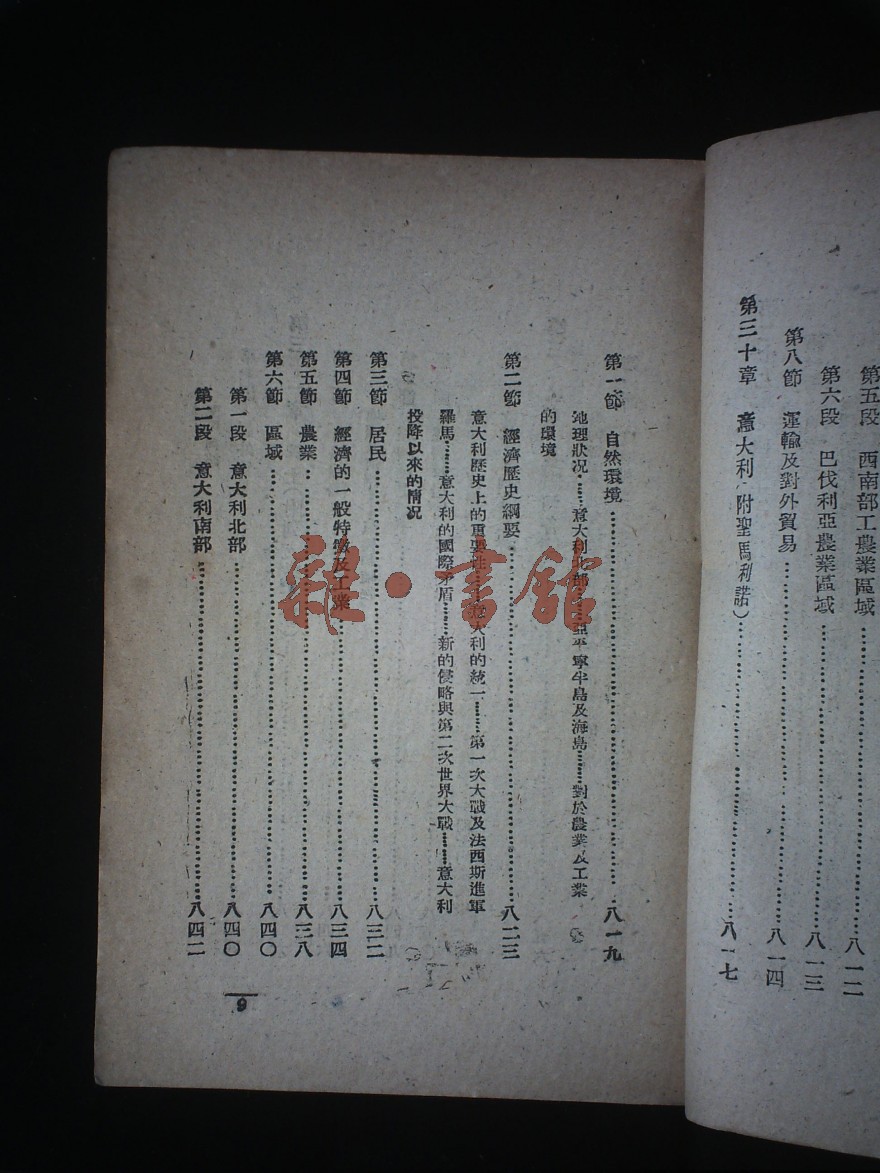 第五段　西南部工農業區域……八一二
第六段　巴伐利亞農業區域……八一三
第八節　運輸及對外貿易……八一四
第三十章　意大利(附聖馬利諾)……八一七
第一節　自然環境……八一九
地理狀況……意大利北部……亞平寧半島及海島……對於農業及工業
的環境
第二節　經濟歷史綱要……八二三
意大利歷史上的重要性……意大利的統一……第一次大戰及法西斯進軍
羅馬……意大利的國際矛盾……新的侵略與第二次世界大戰……意大利
投降以來的情況
第三節　居民……八三二
第四節　經濟的一般特徵及工業……八三四
第五節　農業……八三八
第六節　區域……八四〇
第一段　意大利北部……八四〇
第二段　意大利南部……八四二
9
雜·書館